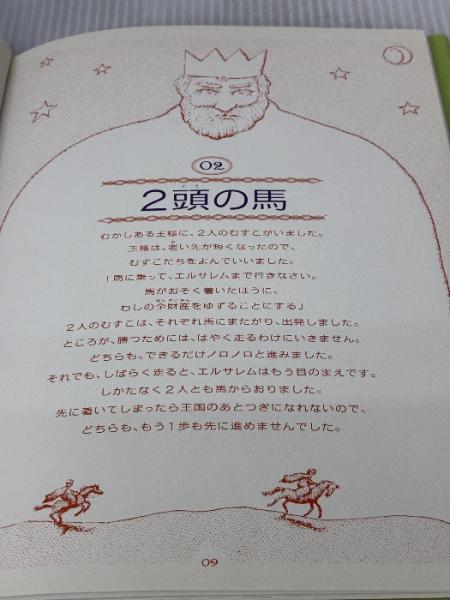 02
2頭の馬
むかしある王様に、2人のむすこがいました。
王様は、老い先が短くなったので、
むすこたちをよんでいいました。
「馬に乗って、エルサレムまで行きなさい。
馬がおそく着いたほうに、
わしの全財産をゆずることにする」
2人のむすこは、それぞれ馬にまたがり、出発しました。
ところが、勝つためには、はやく走るわけにいきません。
どちらも、できるだけノロノロと進みました。
それでも、しばらく走ると、エルサレムはもう目のまえです。
しかたなく2人とも馬からおりました。
先に着いてしまったら王国のあとつぎになれないので、
どちらも、もう1歩も先に進めませんでした。
09